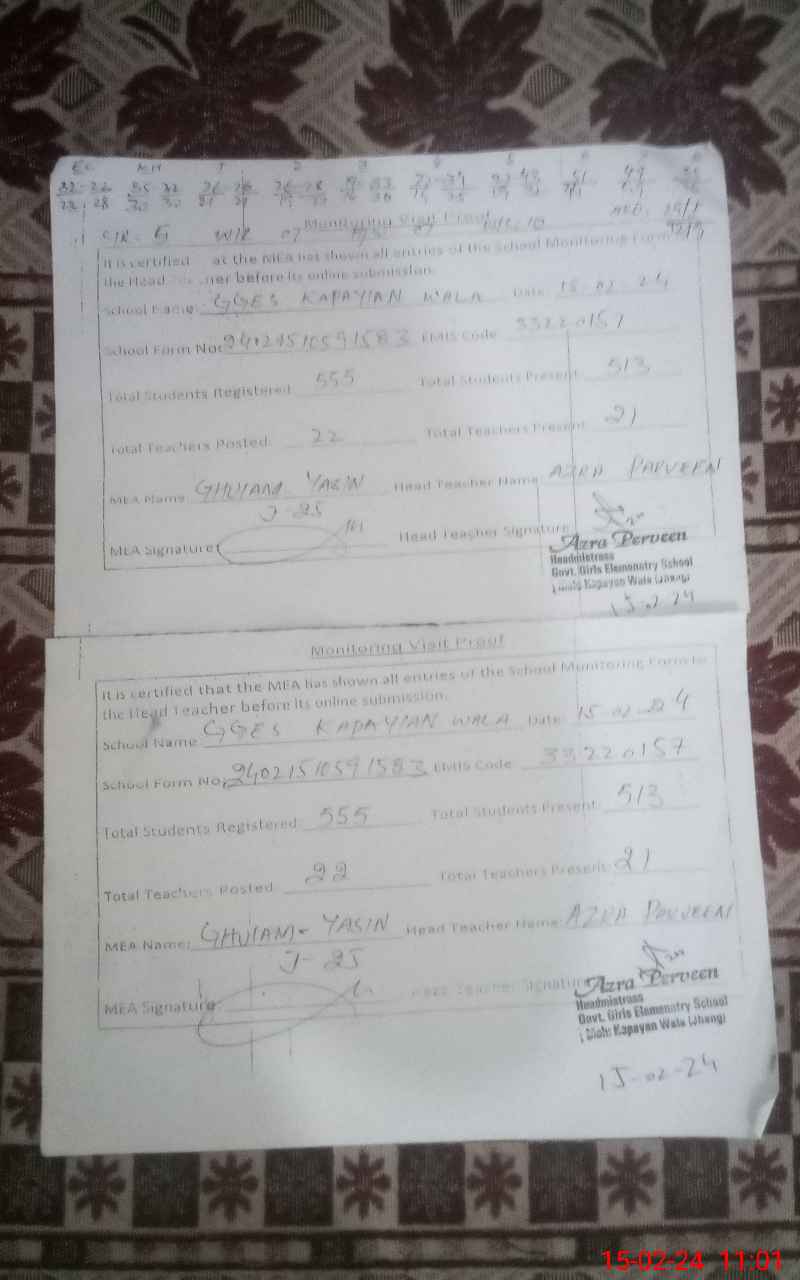 EC KH 1 2 3 4 5
C/R = 5 W/R 07
Monitoring Visit Proof
It is certified at the MEA has shown all entries of the School Monitoring Form
the Head her before its online submission.
School Name: GGES KAPAYIAN WALA Date 15-02-24
School Form No: 24021510591583 EMIS Code 33220157
Total Students Registered 555 Total Students Present 513
Total Teachers Posted 22 Total Teachers Present 21
MEA Name GHULAM YASIN Head Teacher Name AZRA PARVEEN
J-25
MEA Signature: Head Teacher Signature
Azra Perveen
Headmistress
Govt. Girls Elemenatry School
Moh: Kapayan Wala (Jhang)
15-02-24
Monitoring Visit Proof
It is certified that the MEA has shown all entries of the School Monitoring Form to
the Head Teacher before its online submission.
School Name GGES KAPAYIAN WALA Date 15-02-24
School Form No: 24021510591583 EMIS Code 33220157
Total Students Registered 555 Total Students Present 513
Total Teachers Posted 22 Total Teachers Present 21
MEA Name: GHULAM YASIN Head Teacher Name AZRA PARVEEN
J-25
MEA Signature: Head Teacher Signature
Azra Perveen
Headmistress
Govt. Girls Elemenatry School
Moh: Kapayan Wala (Jhang)
15-02-24
15-02-24 11:01